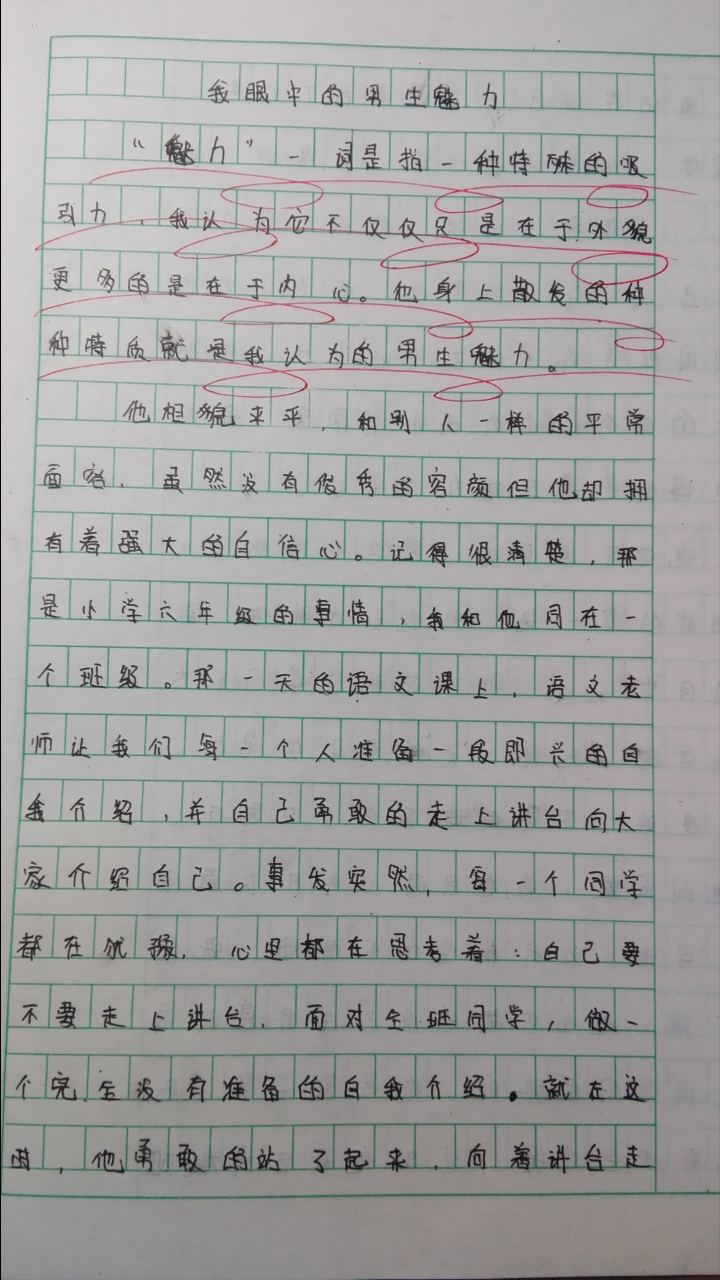 我眼中的男生魅力
“魅力”一词是指一种特殊的吸
引力，我认为它不仅仅只是在于外貌
更多的是在于内心。他身上散发的种
种特质就是我认为的男生魅力。
他相貌来平，和别人一样的平常
面容，虽然没有俊秀的容颜但他却拥
有着强大的自信心。记得很清楚，那
是小学六年级的事情，我和他同在一
个班级。那一天的语文课上，语文老
师让我们每一个人准备一段即兴的自
我介绍，并自己勇敢的走上讲台向大
家介绍自己。事发突然，每一个同学
都在犹豫，心里都在思考着：自己要
不要走上讲台，面对全班同学，做一
个完全没有准备的自我介绍。就在这
时，他勇敢的站了起来，向着讲台走